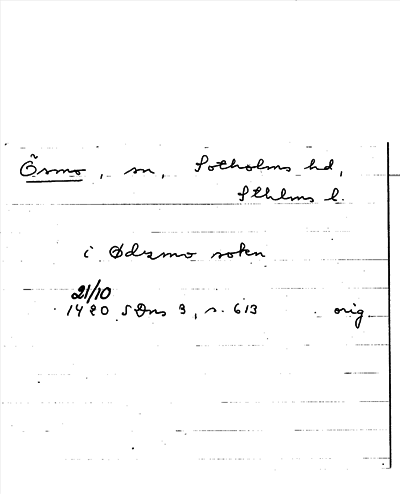 Ösmo, sn, Sotholms hd,
Sthlms l.
i Ødzmo sokn
21/10
1420 SDns 3, s. 613 orig